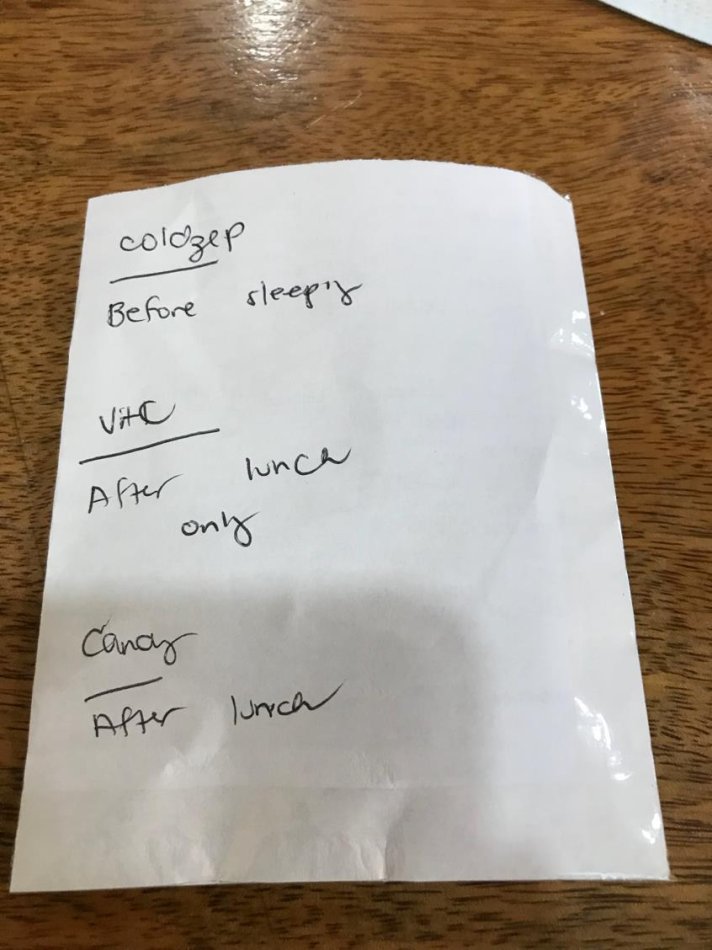 coldzep
Before sleep'y
VitC
After lunch
only
Candy
After lunch